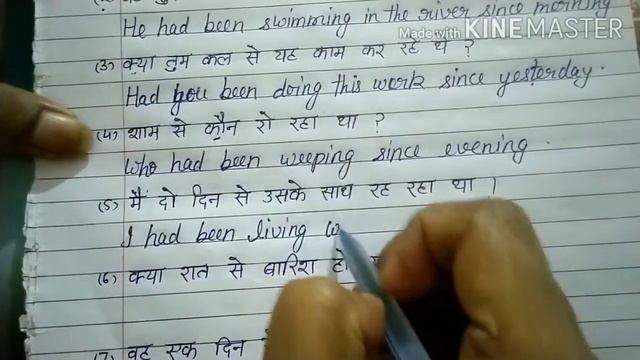 He had been swimming in the river since morning
Made with KINEMASTER
(3) क्या तुम कल से यह काम कर रहे थे ?
Had you been doing this work since yesterday.
(4) शाम से कौन रो रहा था ?
Who had been weeping since evening.
(5) मैं दो दिन से उसके साथ रह रहा था ।
I had been living w
(6) क्या रात से बारिश हो
(7) वह एक दिन